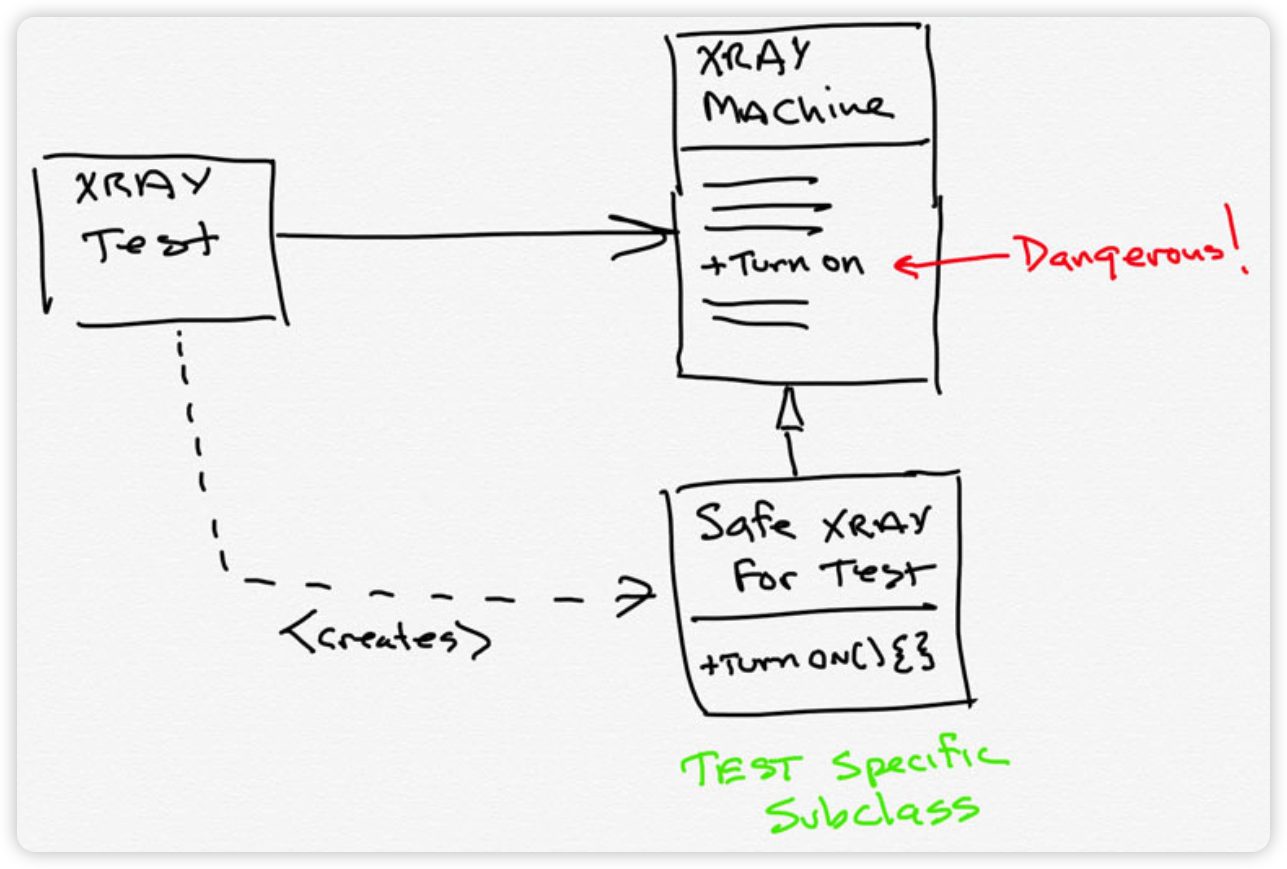 XRAY
Machine
XRAY
Test
+Turn on
Dangerous!
Safe XRAY
For Test
+Turn ON() {}
<creates>
TEST Specific
Subclass